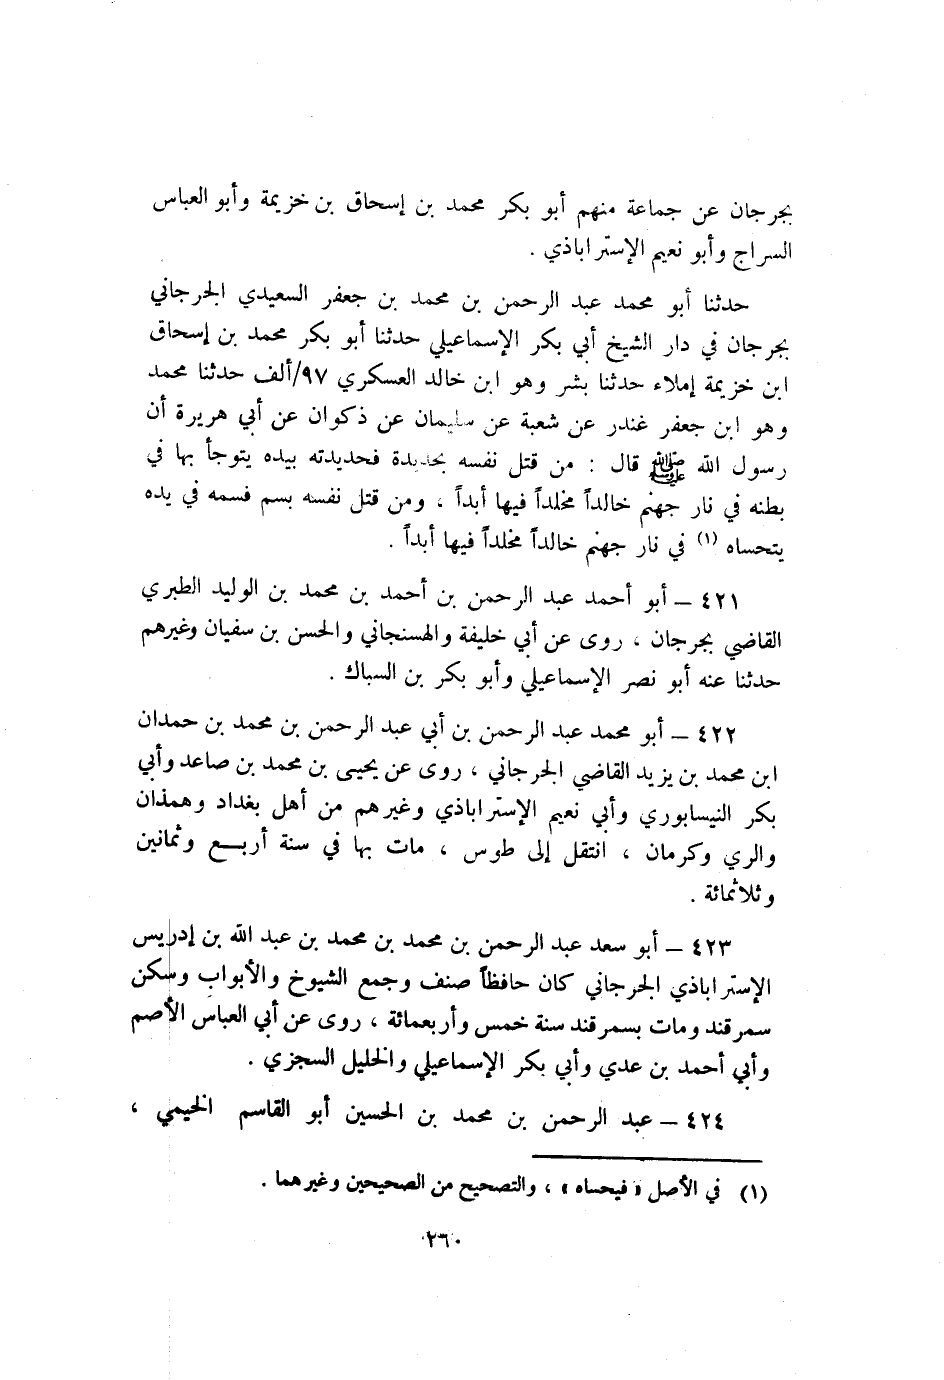 بجرجان عن جماعة منهم أبو بكر محمد بن إسحاق بن خزيمة وأبو العباس
السراج وأبو نعيم الإستراباذي .
حدثنا أبو محمد عبد الرحمن بن محمد بن جعفر السعيدي الجرجاني
بجرجان في دار الشيخ أبي بكر الإسماعيلي حدثنا أبو بكر محمد بن إسحاق
ابن خزيمة إملاء حدثنا بشر وهو ابن خالد العسكري ٩٧/ألف حدثنا محمد
وهو ابن جعفر غندر عن شعبة عن سليمان عن ذكوان عن أبي هريرة أن
رسول الله ﷺ قال : من قتل نفسه بحديدة فحديدته بيده يتوجأ بها في
بطنه في نار جهنم خالداً مخلداً فيها أبداً ، ومن قتل نفسه بسم فسمه في يده
يتحساه (١) في نار جهنم خالداً مخلداً فيها أبداً .
٤٢١ ــ أبو أحمد عبد الرحمن بن أحمد بن محمد بن الوليد الطبري
القاضي بجرجان ، روى عن أبي خليفة والهسنجاني والحسن بن سفيان وغيرهم
حدثنا عنه أبو نصر الإسماعيلي وأبو بكر بن السباك .
٤٢٢ ــ أبو محمد عبد الرحمن بن أبي عبد الرحمن بن محمد بن حمدان
ابن محمد بن يزيد القاضي الجرجاني ، روى عن يحيى بن محمد بن صاعد وأبي
بكر النيسابوري وأبي نعيم الإستراباذي وغيرهم من أهل بغداد وهمذان
والري وكرمان ، انتقل إلى طوس ، مات بها في سنة أربع وثمانين
وثلاثمائة .
٤٢٣ ــ أبو سعد عبد الرحمن بن محمد بن محمد بن عبد الله بن إدريس
الإستراباذي الجرجاني كان حافظاً صنف وجمع الشيوخ والأبواب وسكن
سمرقند ومات بسمرقند سنة خمس وأربعمائة ، روى عن أبي العباس الأصم
وأبي أحمد بن عدي وأبي بكر الإسماعيلي والخليل السجزي .
٤٢٤ ــ عبد الرحمن بن محمد بن الحسين أبو القاسم الخيمي ،
(١) في الأصل « فيحساه » ، والتصحيح من الصحيحين وغيرهما .
٢٦٠